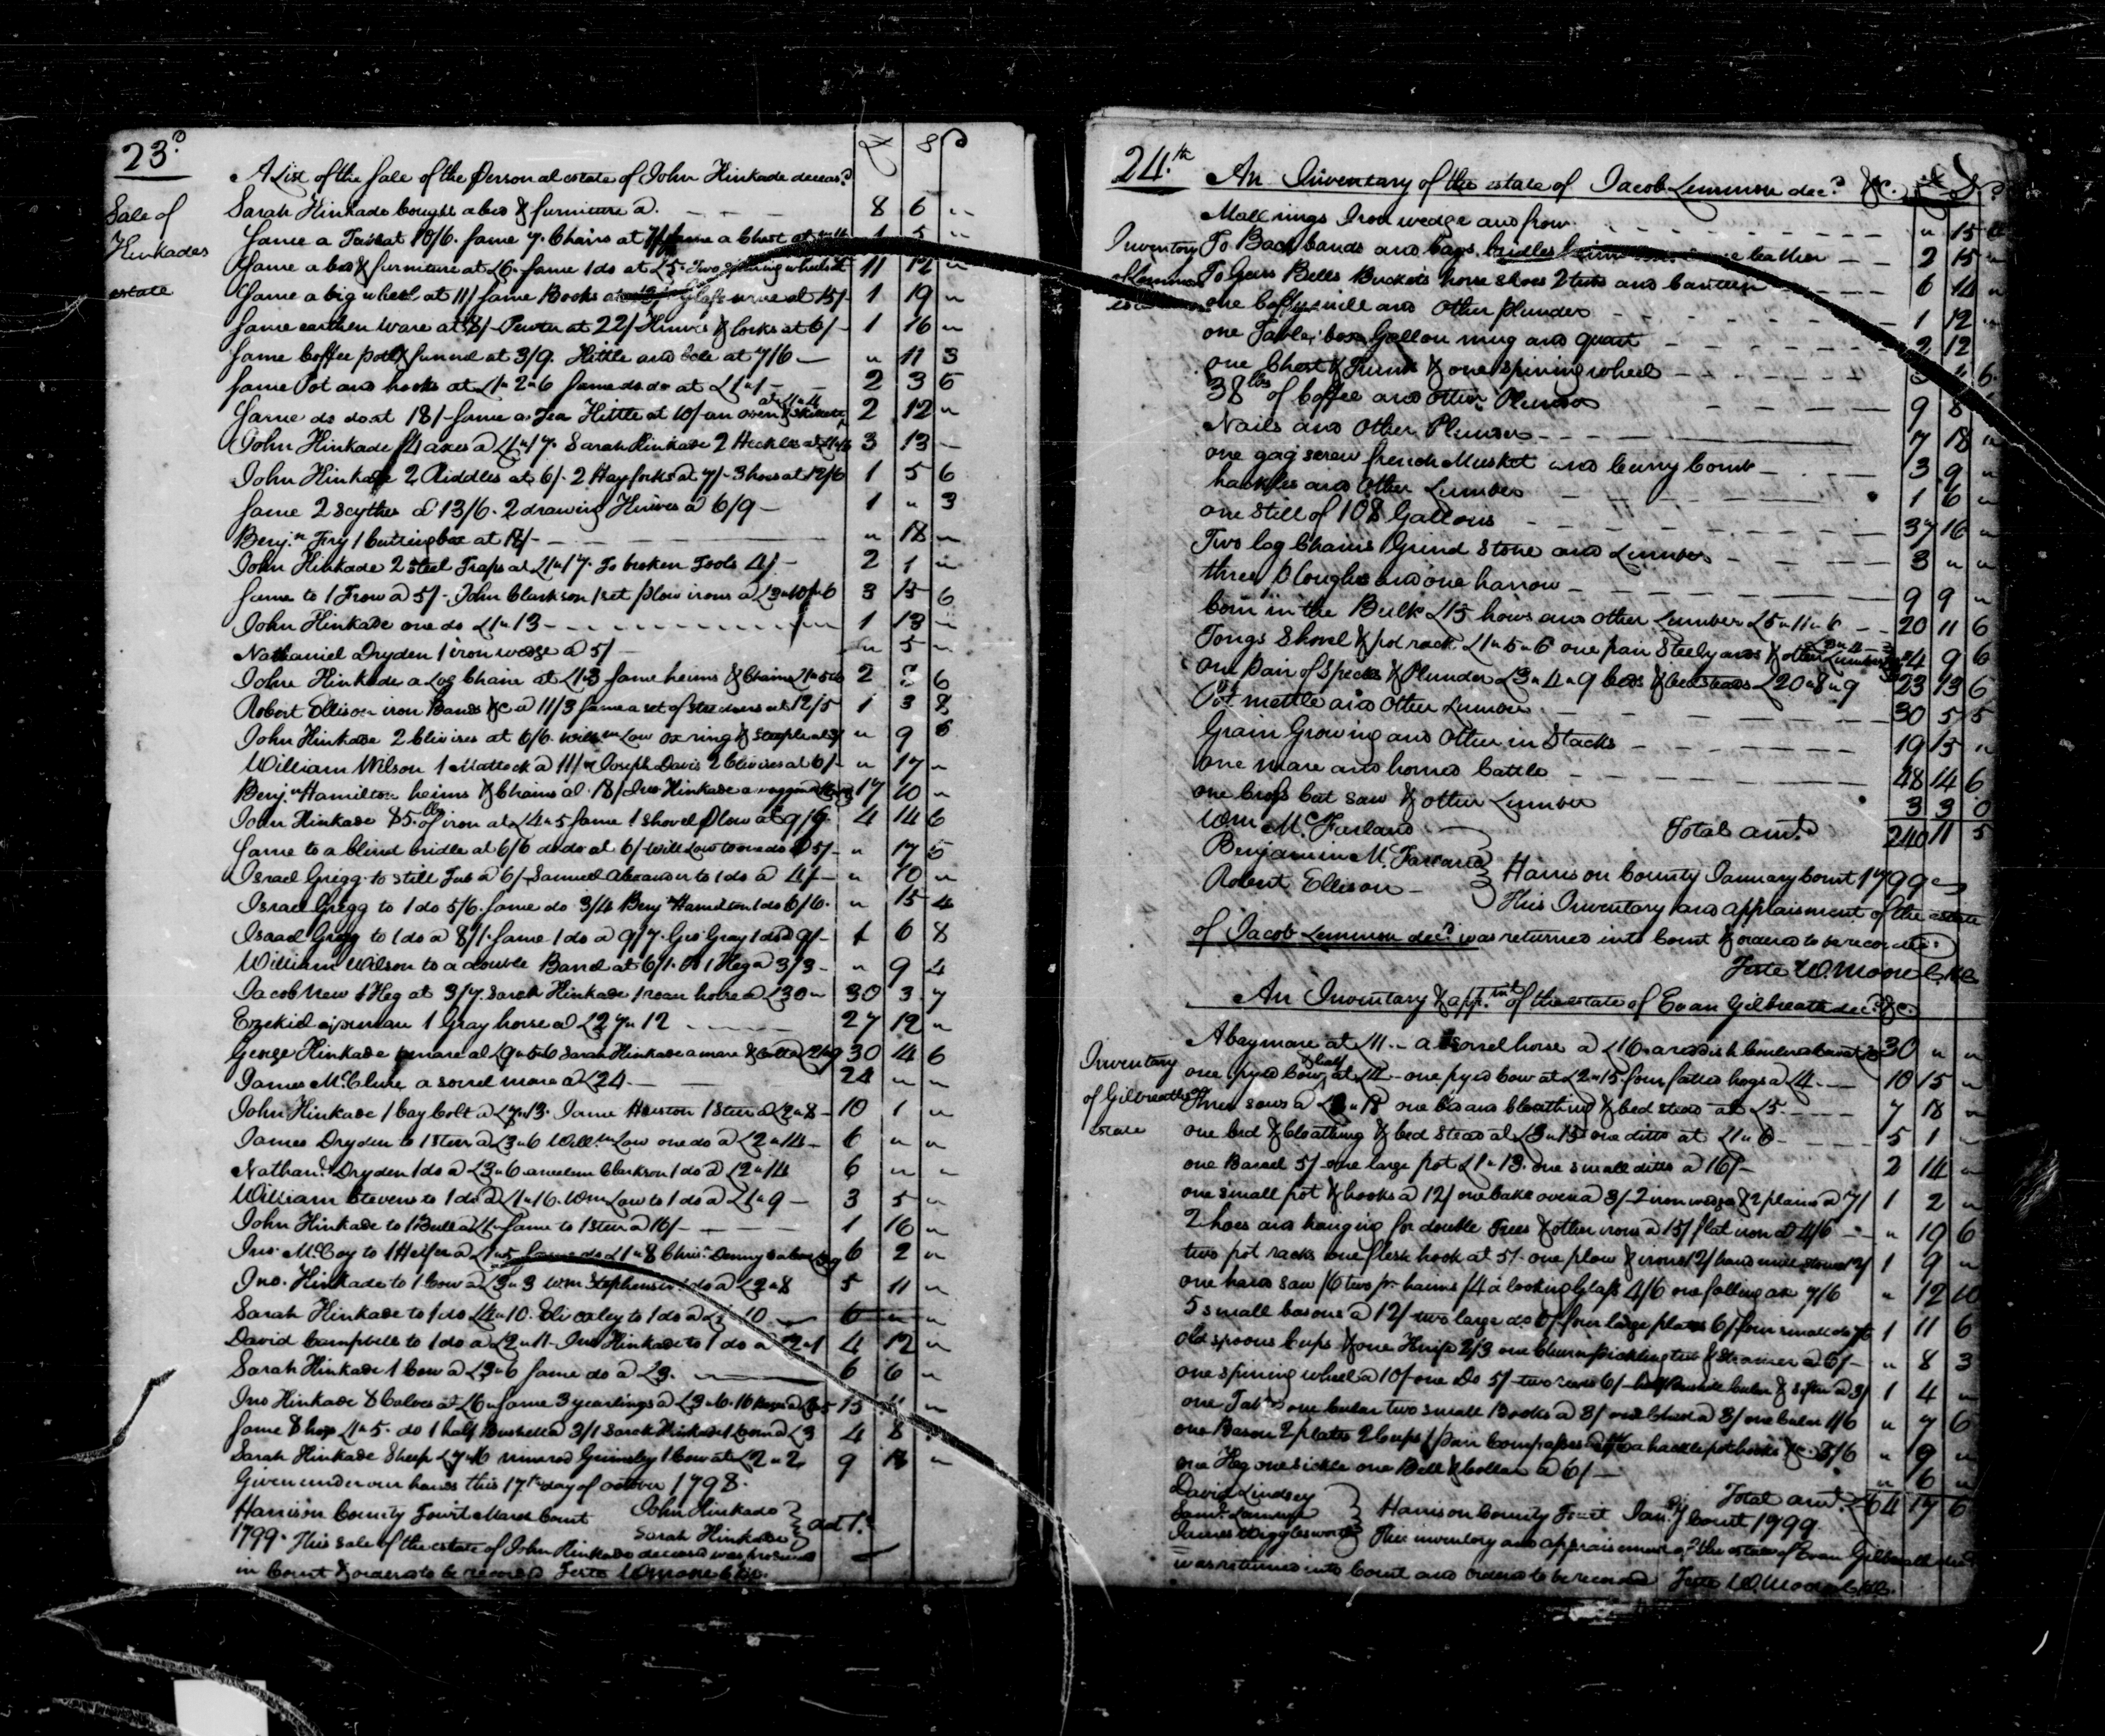 23d
£ S D
A List of the Sale of the Personal estate of John Hinkade deceasd
Sale of
Hinkades
estate
Sarah Hinkade bought a bed & furniture a. 8 6 "
Same a at 10/6. Same 7 Chairs at Same a Chest at 1 5 "
Same a bed & furniture at £6. Same 1 do at £5. Two spinning wheels at 11 12 "
Same a big wheel at 11/ Same Books at 15/ 1 19 "
Same earthen Ware at 8/ Pewter at 22/ Knives & forks at 6/ 1 16 "
Same Coffee pot & funnel at 3/9. Kittle and at 7/6 " 11 3
Same Pot and hooks at £1"2"6 Same do do at £1"1 2 3 6
Same do do at 18/ Same a Tea Kittle at 10/ an oven & skillet at £1"4 2 12 "
John Hinkade 4 axes a £1"17. Sarah Hinkade 2 Heckles at 3 13
John Hinkade 2 Riddles at 6/. 2 Hay forks at 7/. 3 hoes at 12/6 1 5 6
Same 2 scythes a 13/6. 2 drawing Knives a 6/9 1 " 3
Benjn Fry 1 Cutting box at 18/ " 18 "
John Hinkade 2 Steel Traps at £1"17. To broken Tools 4/ 2 1 "
Same to 1 Frow a 5/ John Clarkson 1 set plow irons a £3"10"6 3 15 6
John Hinkade one do £1"13 1 13 "
Nathaniel Dryden 1 iron wedge a 5/ " 5 "
John Hinkade a Log Chain at Same heims & Chains 2 8 6
Robert Ellison iron Bands &c a 11/3 Same a set of at 12/5 1 3 8
John Hinkade 2 Clivises at 6/6. Willm Low ox ring & Steeple at 3/ " 9 6
William Wilson 1 Mattock a 11/ Joseph Davis 2 Clivises at 6/ " 17 "
Benjn Hamilton heims & Chains at 18/ Jno Hinkade a waggon 17 10 "
John Hinkade 85 lb of iron at £4"5 Same 1 Shovel Plow at 9/6 4 14 6
Same to a blind bridle at 6/6 do do at 6/ Will Low to one do a 5/ " 17 6
Israel Gregg to Still Tub a 6/ Samuel Alexander to 1 do a 4/ " 10 "
Israel Gregg to 1 do 5/6. Same do 3/4 Benjn Hamilton 1 do 6/6. " 15 4
Israel Gregg to 1 do a 8/1. Same 1 do a 9/7. Geo Gray 1 do a 9/ 1 6 8
William Wilson to a double Barrel at 6/1. Do 1 Keg a 3/3 " 9 4
Jacob New 1 Keg at 3/7. Sarah Hinkade 1 roan horse a £30 30 3 7
Ezekiel 1 Gray horse a £27"12 27 12 "
George Hinkade mare at £9"5"6 Sarah Hinkade a mare & Colt a 30 4 6
James McClure a sorrel mare a £24. 24 " "
John Hinkade 1 bay Colt a £7"13. Same 1 Steer a £2"8 10 1 "
James Dryden to 1 Steer a £3"6 Willm Low one do a £2"14 6 " "
Nathanl Dryden 1 do a £3"6 Clarkson 1 do a £2"14 6 " "
William Stevens to 1 do a £1"16. Wm Low to 1 do a £1"9 3 5 "
John Hinkade to 1 Bull a £1. Same to 1 Steer a 16/ 1 16 "
Jno McCoy to 1 Heifer a £1"5 Same do £1"8 Chris. Denny 6 2 "
Jno. Hinkade to 1 Cow a £3"3 Wm Stephenson 1 do a £2"8 5 11 "
Sarah Hinkade to 1 do £4"10. to 1 do a £1"10 6 " "
David Campbell to 1 do a £2"11. Jno Hinkade to 1 do a £2"1 4 12 "
Sarah Hinkade 1 Cow a £3"6 Same do a £3. 6 6 "
Jno Hinkade 8 Calves at £6 Same 3 yearlings a £3"6. 16 15 11 "
Same 8 hogs £1"5. do 1 half Bushel a 3/1 Sarah Hinkade £3 4 8
Sarah Hinkade Sheep Grimsley 1 Cow at £2"2 9 "
Given under our hands this 17th day of October 1798.
Harrison County Towit March Court John Hinkade
1799. This Sale of the estate of John Hinkade deceased was Sarah Hinkade
in Court & ordered to be recorded Teste W Moore
24th An Inventory of the estate of Jacob Lemmon decd &c. £ S D
Inventory
Lemmon
Mall rings Iron wedge and frow " 15
To Back bands and bags. leather 2 15 "
To Gears Bells Buckets horse shoes 2 tubs and Canteen 6 14 "
one Coffy mill and Other plunder 1 12 "
one Table, box Gallon mug and quart 2 12
one Chest & Trunk & one spinning wheel 6
38 lbs of Coffee and other Plunder 9 8
Nails and Other Plunder 7 18 "
one gag screw french Musket and Curry Comb 3 9 "
hackles and Other Lumber 1 6 "
one Still of 108 Gallons 37 16 "
Two log Chains Grind Stone and Lumber 3 " "
three Ploughs and one harrow 9 9 "
Corn in the Bulk £15 hows and other Lumber £5"11"6 20 11 6
Tongs Shovel & pot rack £1"5"6 one pair Steelyards & other Lumber 4 9 6
one pair of Specks & Plunder £3"4"9 beds & bedsteads £20"8"9 23 13 6
Pot mettle and Other Lumber 30 5 5
Grain Growing and Other in Stacks 19 15 "
one mare and horned Cattle 48 14 6
one Cross Cut saw & other Lumber 3 3 0
Wm McFarland Total amt. 240 11 5
Benjamin McFarland Harrison County January Court 1799
Robert Ellison This Inventory and appraisment of the estate
of Jacob Lemmon decd was returned into Court & ordered to be recorded
Teste W. Moore
An Inventory & appmt of the estate of Evan Gilbreath decd &c.
Inventory
of Gilbreaths
estate
A bay mare at £11. a sorrel horse a £16. a 30 " "
one pyed Cow & Calf at £4 one pyed Cow at £2"15. four fatted hogs a £4. 10 15 "
Three sows a one bed and Cloathing & bed stead at £5. 7 18 "
one bed & Cloathing & bed Stead at £3"15 one ditto at £1"6 5 1 "
one Barrel 5/ one large pot £1"13. one small ditto a 16/ 2 14 "
one small pot & hooks a 12/ one bake oven a 3/ 2 iron wedges & 2 plains a 7/ 1 2 "
2 hoes and hanging for double Trees & other irons a 15/ flat iron a 4/6 " 19 6
two pot racks one flesh hook at 5/. one plow & irons 12/ hand mill stones 12/ 1 9 "
one hand saw /6 two pr. haims /4 a looking Glass 4/6 one falling ax 7/6 " 12 10
5 small basons a 12/ two large do 6/ four large plates 6/ four small do 1 11 6
old spoons Cups & one Knife 2/3 one Churn pickling tub & Strainer a 6/ " 8 3
one spinning wheel a 10/ one Do 5/ two 6/ 1 4 "
one two small Books a 3/ " 7 6
one Bason 2 plates 2 Cups 1 pair Compasses a hackle pot hooks &c. 8/6 " 9 "
one Keg one sickle one Bell & Collar a 6/ " 6 "
David Lindsey Total amt £64 17 6
Harrison County Towit Jany Court 1799
James Wigglesworth This inventory and appraisement of the estate of Evan Gilbreath decd
was returned into Court and ordered to be recorded Teste W Moore